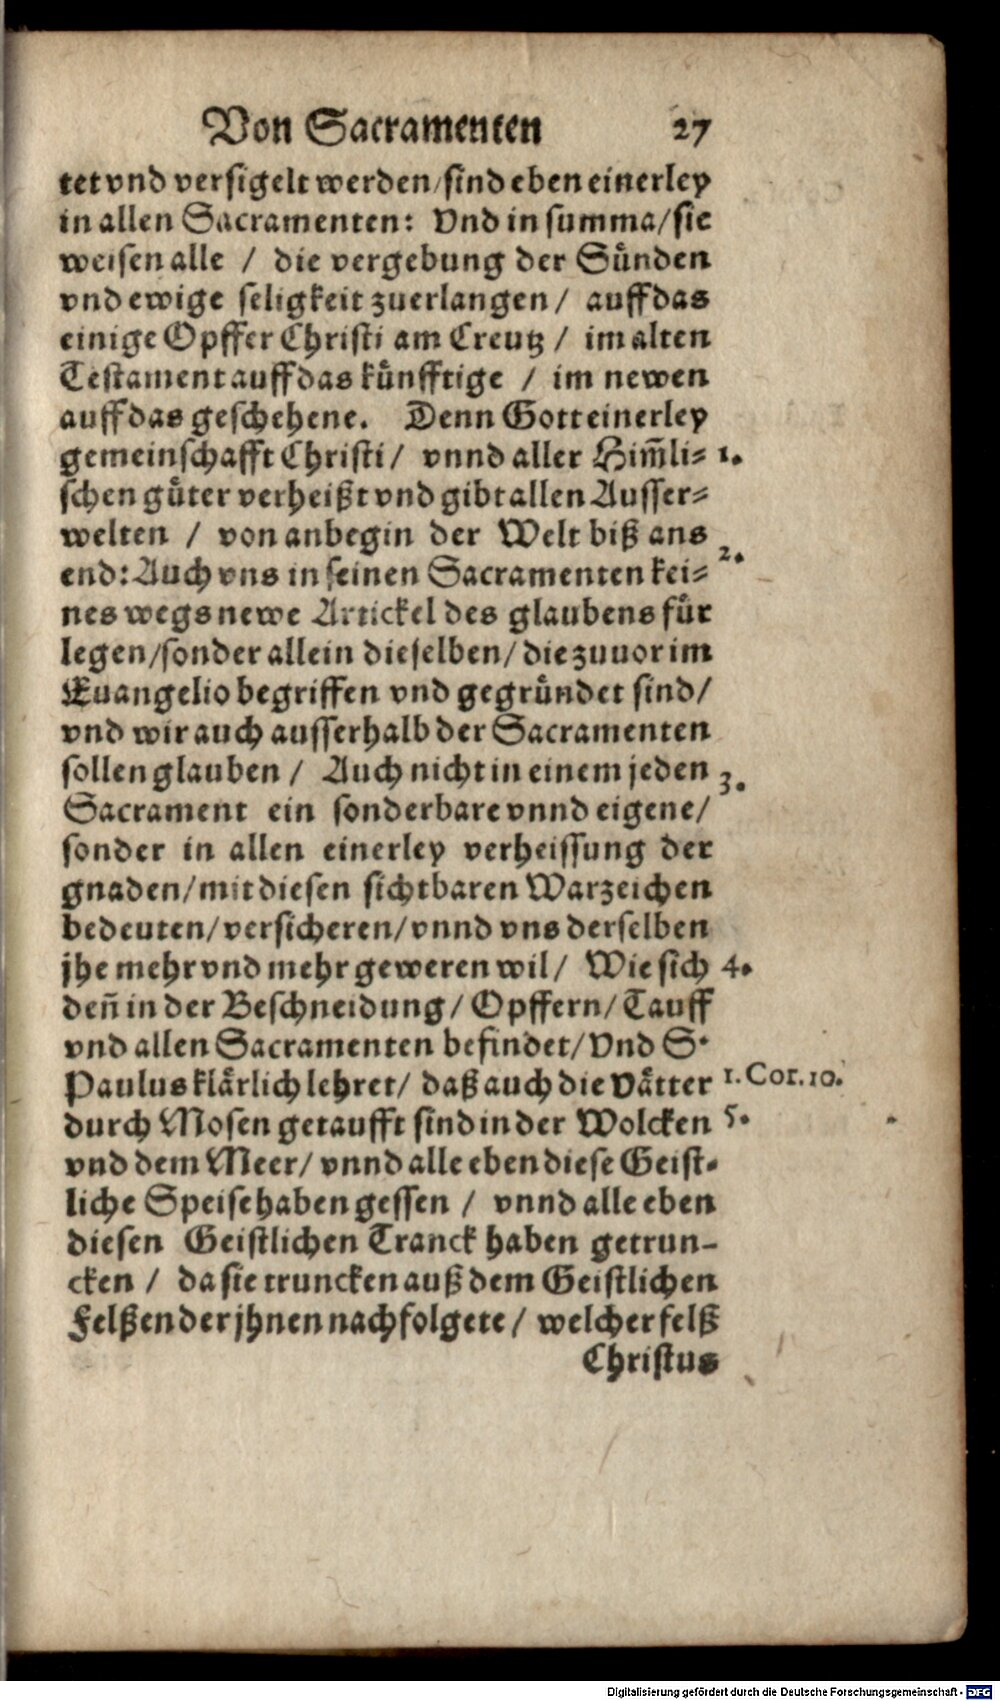 Von Sacramenten 27
tet vnd versigelt werden/sind eben einerley
in allen Sacramenten: Vnd in summa/sie
weisen alle / die vergebung der Sünden
vnd ewige seligkeit zuerlangen/ auff das
einige Opffer Christi am Creutz / im alten
Testament auff das künfftige / im newen
auff das geschehene. Denn Gott einerley
gemeinschafft Christi/ vnnd aller Him̃li⸗ 1.
schen güter verheißt vnd gibt allen Ausser⸗
welten / von anbegin der Welt biß ans
end: Auch vns in seinen Sacramenten kei⸗ 2.
nes wegs newe Artickel des glaubens für
legen/sonder allein dieselben/ die zuuor im
Euangelio begriffen vnd gegründet sind/
vnd wir auch ausserhalb der Sacramenten
sollen glauben / Auch nicht in einem jeden 3.
Sacrament ein sonderbare vnnd eigene/
sonder in allen einerley verheissung der
gnaden/mit diesen sichtbaren Warzeichen
bedeuten/versicheren/vnnd vns derselben
jhe mehr vnd mehr geweren wil/ Wie sich 4.
den̄ in der Beschneidung/ Opffern/Tauff
vnd allen Sacramenten befindet/Vnd S.
Paulus klärlich lehret/ daß auch die Vätter 1. Cor. 10.
durch Mosen getaufft sind in der Wolcken 5.
vnd dem Meer/ vnnd alle eben diese Geist⸗
liche Speise haben gessen / vnnd alle eben
diesen Geistlichen Tranck haben getrun-
cken / da sie truncken auß dem Geistlichen
Felßen der jhnen nachfolgete/ welcher felß
Christus
Digitalisierung gefördert durch die Deutsche Forschungsgemeinschaft - DFG